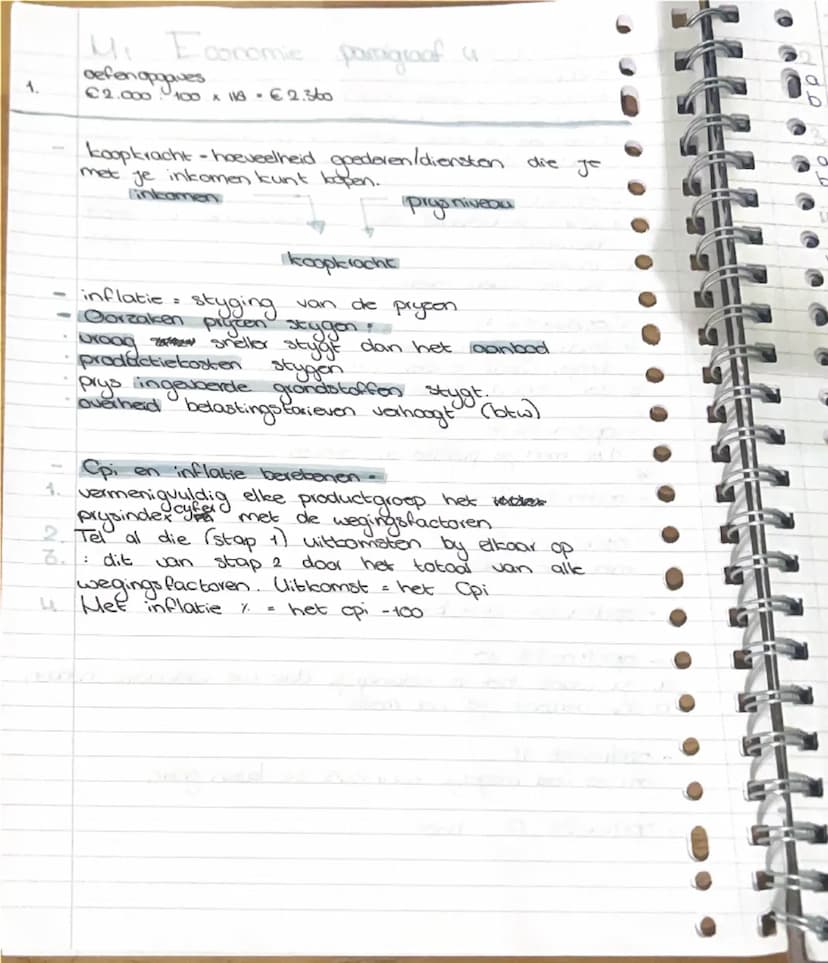 H1 Economie paragraaf 4
oefenopgaves
1. €2.000 : 100 x 118 = €2.360
- koopkracht = hoeveelheid goederen/diensten die je
met je inkomen kunt kopen.
inkomen prijsniveau
koopkracht
- inflatie = stijging van de prijzen
- Oorzaken prijzen stijgen :
· vraag sneller stijgt dan het aanbod
· productiekosten stijgen
· prijs ingevoerde grondstoffen stijgt.
· overheid belastingstarieven verhoogt (btw)
- Cpi en inflatie berekenen -
1. vermenigvuldig elke productgroep het
prijsindexcijfer met de wegingsfactoren
2. Tel al die (stap 1) uitkomsten bij elkaar op
3. : dit van stap 2 door het totaal van alle
wegingsfactoren. Uitkomst = het Cpi
4. Het inflatie % = het cpi -100
2
a
b
3
a
b